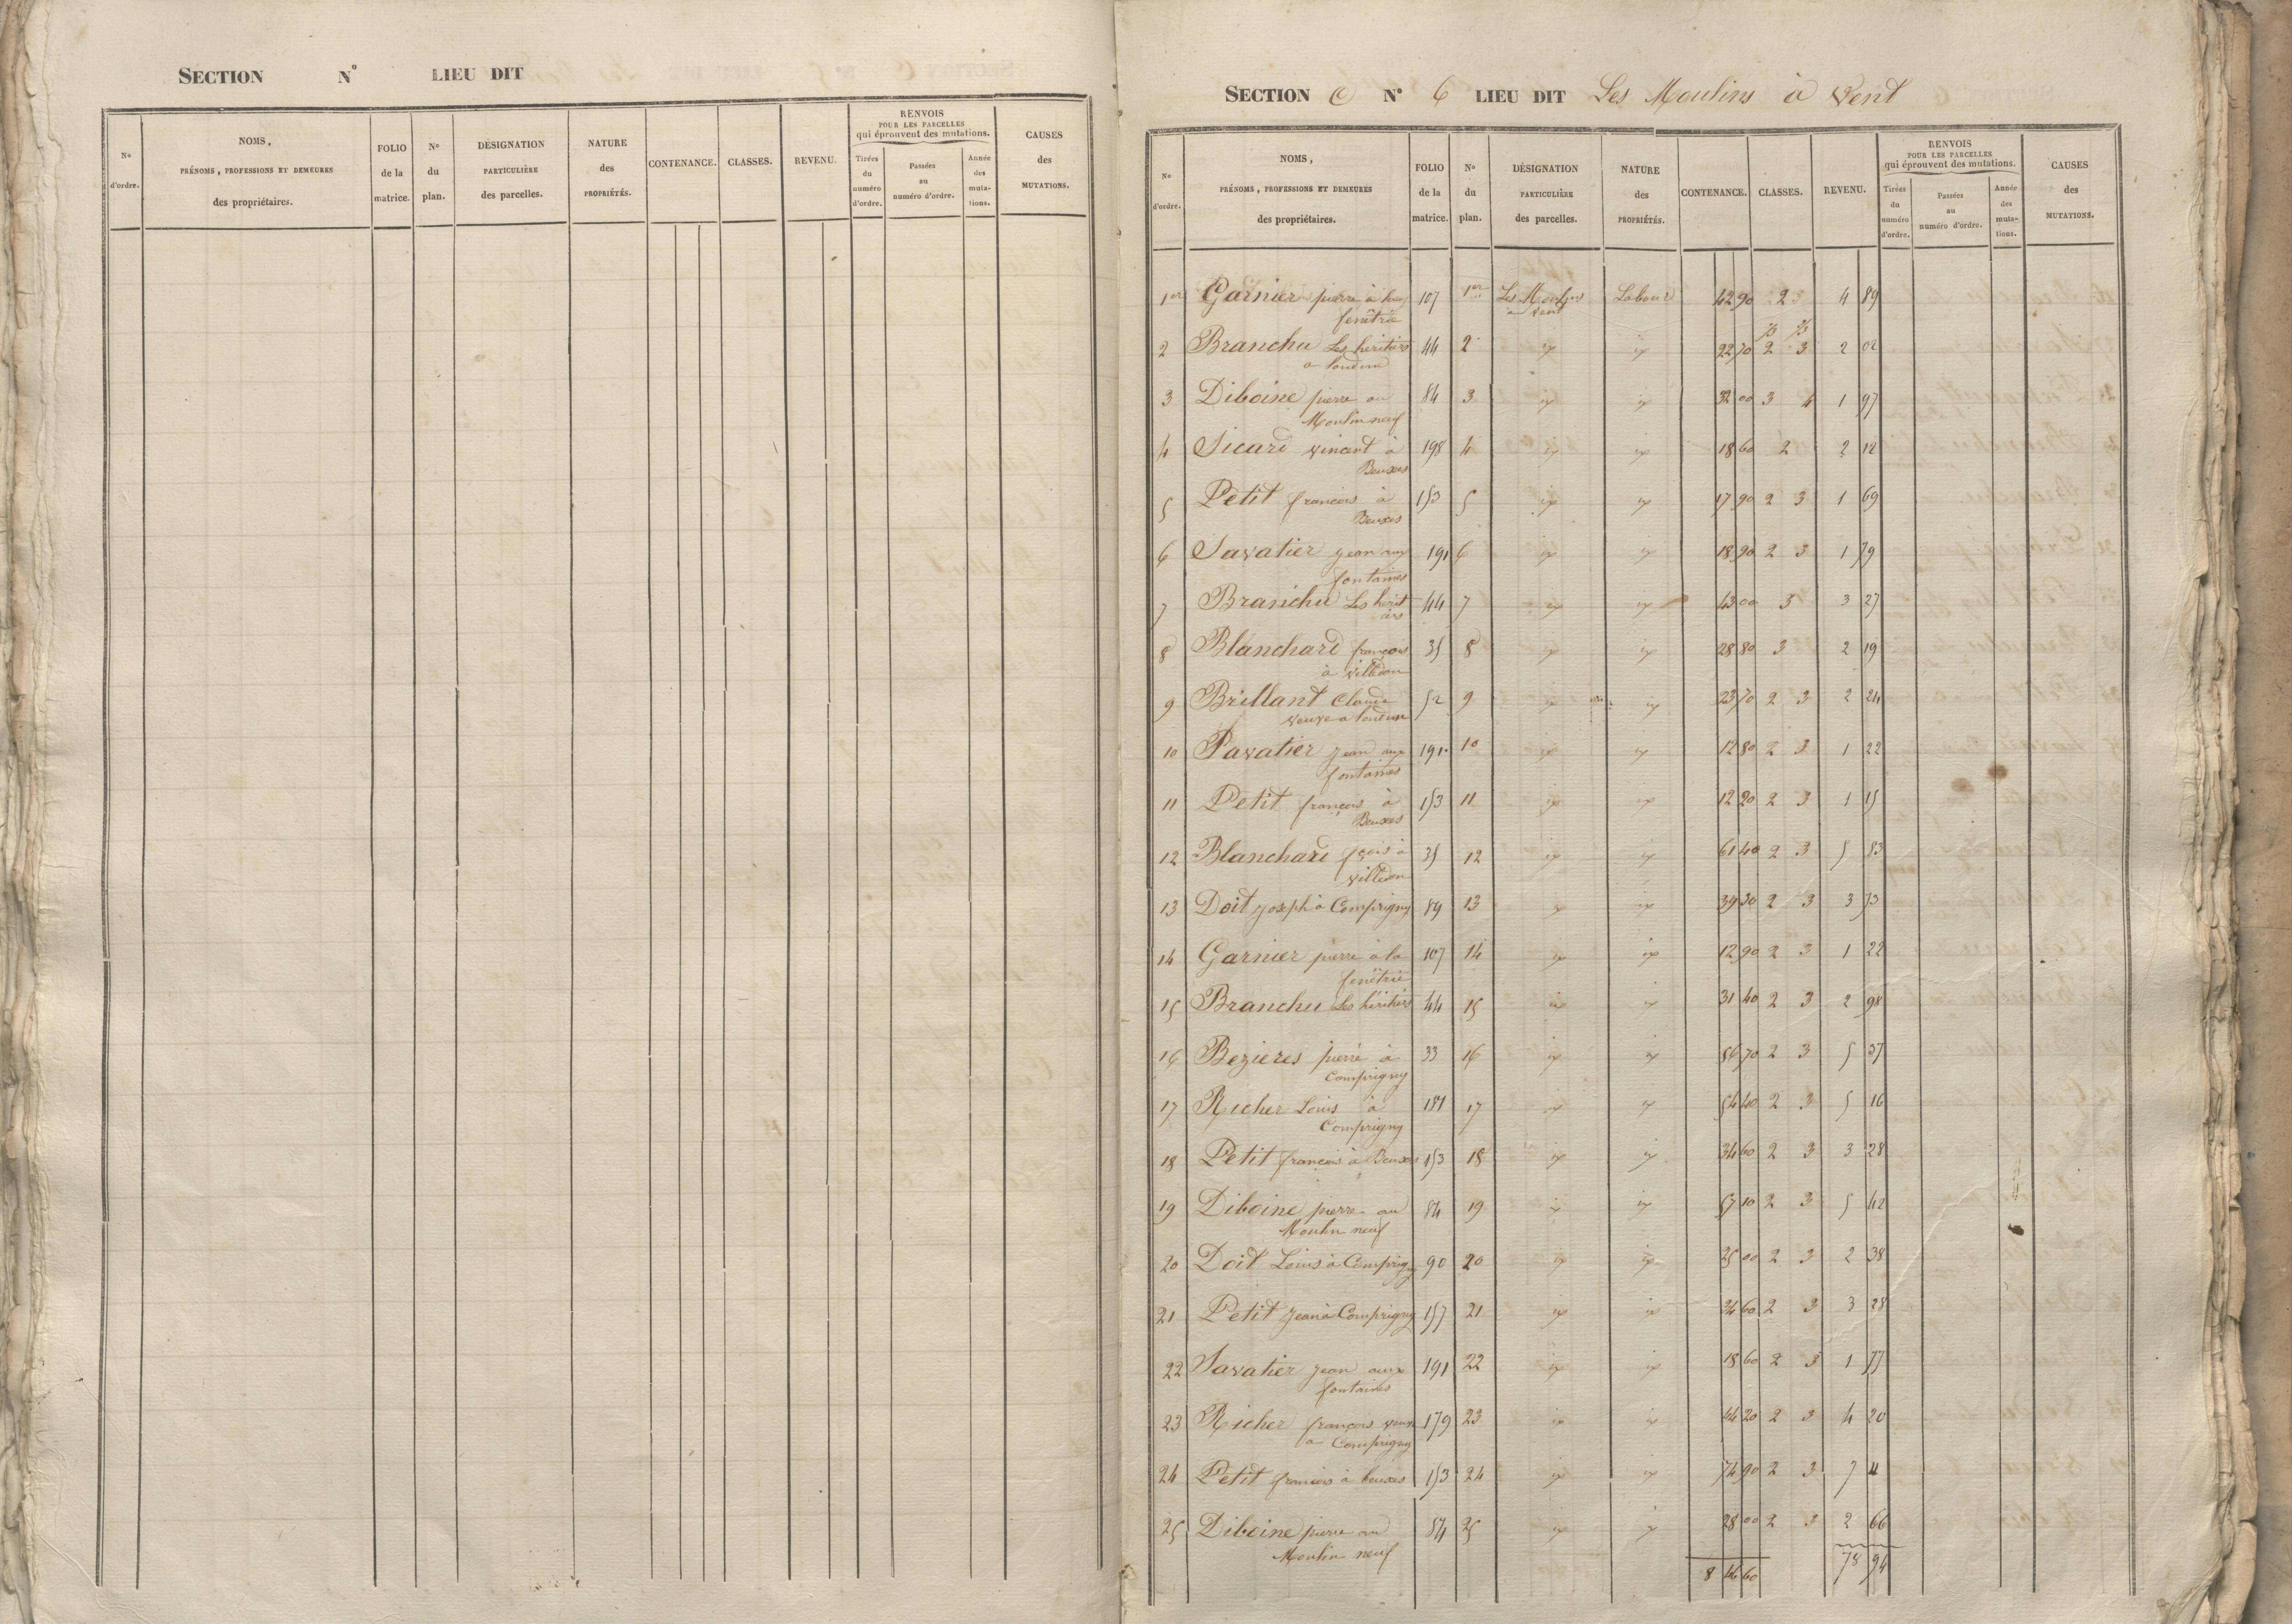 SECTION N° LIEU DIT
N° d'ordre. NOMS, PRÉNOMS, PROFESSIONS ET DEMEURES des propriétaires. FOLIO de la matrice. N° du plan. DÉSIGNATION PARTICULIÈRE des parcelles. NATURE des PROPRIÉTÉS. CONTENANCE. CLASSES. REVENU. RENVOIS POUR LES PARCELLES qui éprouvent des mutations. Tirées du numéro d'ordre. Passées au numéro d'ordre. Année des mutations. CAUSES des MUTATIONS.
SECTION C N° 6 LIEU DIT Les Moulins à Vent
N° d'ordre. NOMS, PRÉNOMS, PROFESSIONS ET DEMEURES des propriétaires. FOLIO de la matrice. N° du plan. DÉSIGNATION PARTICULIÈRE des parcelles. NATURE des PROPRIÉTÉS. CONTENANCE. CLASSES. REVENU. RENVOIS POUR LES PARCELLES qui éprouvent des mutations. Tirées du numéro d'ordre. Passées au numéro d'ordre. Année des mutations. CAUSES des MUTATIONS.
1er Garnier pierre à la 107 1er Les Moulins Labour 42 90 2 4 89
fenêtrie à vent
2 Branchu Les héritiers 44 2 22 70 2 3 2 02
a loudun
3 Diboine pierre au 84 3 32 00 3 4 1 97
Moulin neuf
4 Sicard vincent à 198 4 18 60 2 2 12
Beuxes
5 Petit francois à 153 5 17 90 2 3 1 69
Beuxes
6 Savatier jean aux 191 6 18 90 2 3 1 79
fontaines
7 Branchu Les herit 44 7 43 00 3 3 27
iers
8 Blanchard françois 35 8 28 80 3 2 19
à villedon
9 Brillant Claude 52 9 23 70 2 3 2 24
veuve a loudun
10 Savatier jean aux 191 10 12 80 2 3 1 22
fontaines
11 Petit françois à 153 11 12 20 2 3 1 15
Beuxes
12 Blanchard fçois à 35 12 61 40 2 3 5 83
villedon
13 Doit joseph à Comprigny 89 13 39 30 2 3 3 73
14 Garnier pierre à la 107 14 12 90 2 3 1 22
fenêtrie
15 Branchu Les héritiers 44 15 31 40 2 3 2 98
16 Bezieres pierre à 33 16 56 70 2 3 5 37
Comprigny
17 Richer Louis à 181 17 54 40 2 3 5 16
Comprigny
18 Petit francois à Beuxes 153 18 34 60 2 3 3 28
19 Diboine pierre au 84 19 57 10 2 3 5 42
Moulin neuf
20 Doit Louis à Comprigny 90 20 25 00 2 3 2 38
21 Petit jean à Comprigny 157 21 34 60 2 3 3 28
22 Savatier jean aux 191 22 18 60 2 3 1 77
fontaines
23 Richer françois veuve 179 23 44 20 2 3 4 20
a Comprigny
24 Petit francois à beuxes 153 24 74 90 2 3 7 11
25 Diboine pierre au 84 25 28 00 2 3 2 66
Moulin neuf
8 46 60 78 94